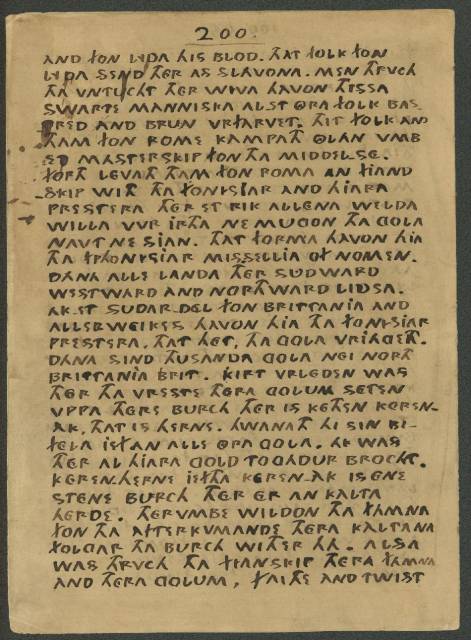 200.
AND FON LYDA HIS BLOD. THAT FOLK FON
LYDA SEND THER AS SLAVONA. MEN THRVCH
THA VNTLUCHT THER WIVA HAVON THISSA
SWARTE MANNISKA AL ET ORA FOLK BAS-
TRED AND BRUN VRFARVET. THIT FOLK AND
THAM FON ROME KAMPATH OLAN VMB
ET MASTERSKIP FON THA MIDDELSE.
FORTH LEVATH THAM FON ROMA AN FIAND
SKIP WITH THA FONISIAR AND HIARA
PRESTERA THER ET RIK ALLENA WELDA
WILLA VVR IRTHA NE MUGON THA GOLA
NAVT NE SIAN. THAT FORMA HAVON HIA
THA FPHONISIAR MISSELLIA OF NOMEN.
DANA ALLE LANDA THER SUDWARD
WESTWARD AND NORTHWARD LIDSA.
AK ET SUDAR DEL FON BRITTANIA AND
ALLERWEIKES HAVON HIA THA FONISIAR
PRESTERA. THAT HET, THA GOLA VRIAGETH.
DANA SIND THUSANDA GOLA NEI NORTH
BRITTANIA BRIT. KIRT VRLEDEN WAS
THER THA VRESTE THERA GOLUM SETEN
VPPA THERE BURCH THER IS KETHEN KEREN-
AK. THAT IS HERNE. HWANATH HI SIN BI-
FELA IEF AN ALLE ORA GOLA. AK WAS
THER AL HIARA GOLD TOGADUR BROCHT.
KEREN HERNE IEFTHA KEREN-AK IS ENE
STENE BURCH THER ER AN KALTA
HERDE. THERVMBE WILDON THA FAMNA
FON THA AFTERKVMANDE THERA KALTANA
FOLGAR THA BURCH WITHER HA. ALSA
WAS THRVCH THA FIANSKIP THERA FAMNA
AND THERA GOLUM, FAITHE AND TWIST